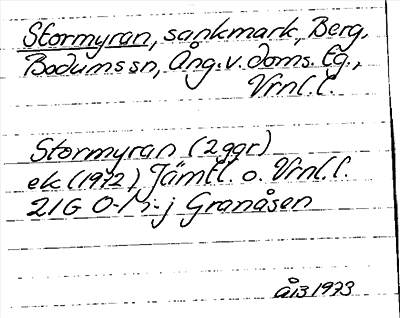 Stormyran, sankmark, Berg,
Bodums sn, Ång. v. doms. tg.,
Vrnl. l.
Stormyran (2 ggr)
ek (1972) Jämtl. o. Vrnl. l.
21G O-M-j Granåsen
1973